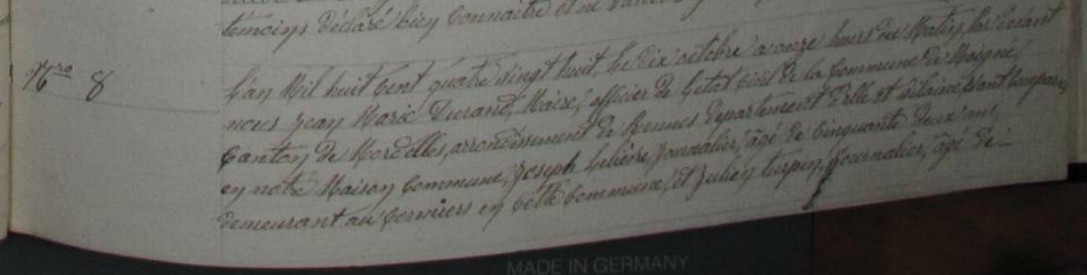 témoins déclaré bien connaitre et ne
Nro 8
L'an Mil huit Cent quatre vingt huit, le dix octobre a onze heurs du Matin, Par devant
nous Jean Marie Durand, Maire, officier de l'etat Civil de la Commune de Moigné,
Canton de Mordelles, arrondissement de Rennes departement d'ille et vilaine, sont comparu
en notre Maison Commune, Joseph Lelièvre, journalier, âgé de Cinquante deux ans,
demeurant au Cormiers en Cette Commune, et Julien turpin, Journalier, âgé de
MADE IN GERMANY